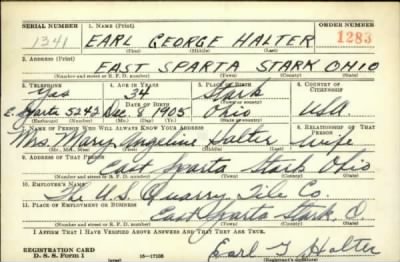 SERIAL NUMBER 1. NAME (Print) ORDER NUMBER
1341 EARL GEORGE HALTER 1283
(First) (Middle) (Last)
2. ADDRESS (Print)
EAST SPARTA STARK OHIO
(Number and street or R. F. D. number) (Town) (County) (State)
3. TELEPHONE 4. AGE IN YEARS 5. PLACE OF BIRTH 6. COUNTRY OF CITIZENSHIP
Yes 34 Stark
DATE OF BIRTH
E. Sparta 5243 Dec 9 1905 Ohio USA
(Exchange) (Number) (Mo.) (Day) (Yr.) (State or country)
7. NAME OF PERSON WHO WILL ALWAYS KNOW YOUR ADDRESS 8. RELATIONSHIP OF THAT PERSON
Mrs Mary Angeline Halter wife
(Mr., Mrs., Miss) (First) (Middle) (Last)
9. ADDRESS OF THAT PERSON
East Sparta Stark Ohio
(Number and street or R. F. D. number) (Town) (County) (State)
10. EMPLOYER'S NAME
The U.S. Quarry Tile Co.
11. PLACE OF EMPLOYMENT OR BUSINESS
East Sparta Stark, O.
(Number and street or R. F. D. number) (Town) (County) (State)
I AFFIRM THAT I HAVE VERIFIED ABOVE ANSWERS AND THAT THEY ARE TRUE.
REGISTRATION CARD
D. S. S. Form 1 16-17105 Earl G Halter
(Registrant's signature)